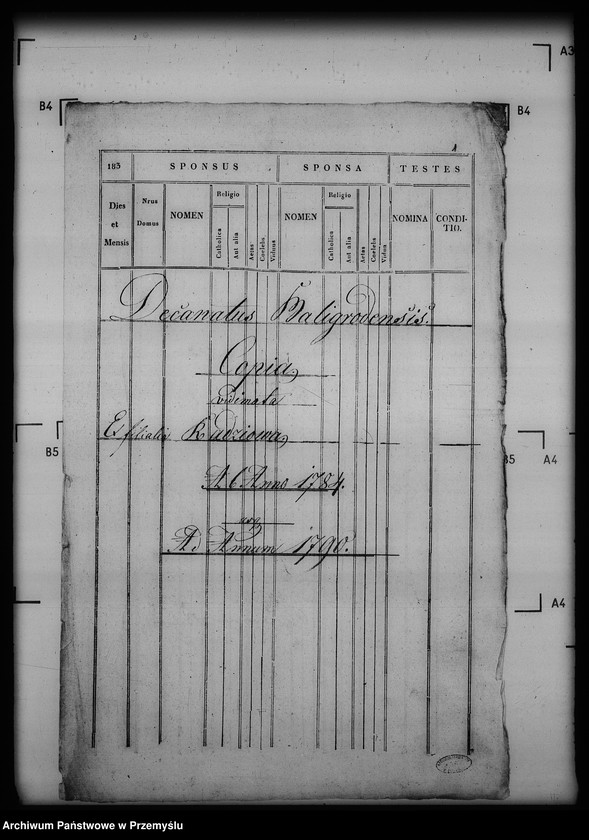 A3
B4
B4
1
183 SPONSUS SPONSA TESTES
Dies et Mensis
Nrus Domus
NOMEN
Religio
Catholica
Aut alia
Aetas
Coelebs
Viduus
NOMEN
Religio
Catholica
Aut alia
Aetas
Coelebs
Vidua
NOMINA
CONDI-
TIO.
Decanatus Baligrodensis.
Copia
vidimata
Et filialis Radziowa
B5
B5
A4
Ab Anno 1784.
usq
Ad Annum 1790.
A4
Archiwum Państwowe w Przemyślu